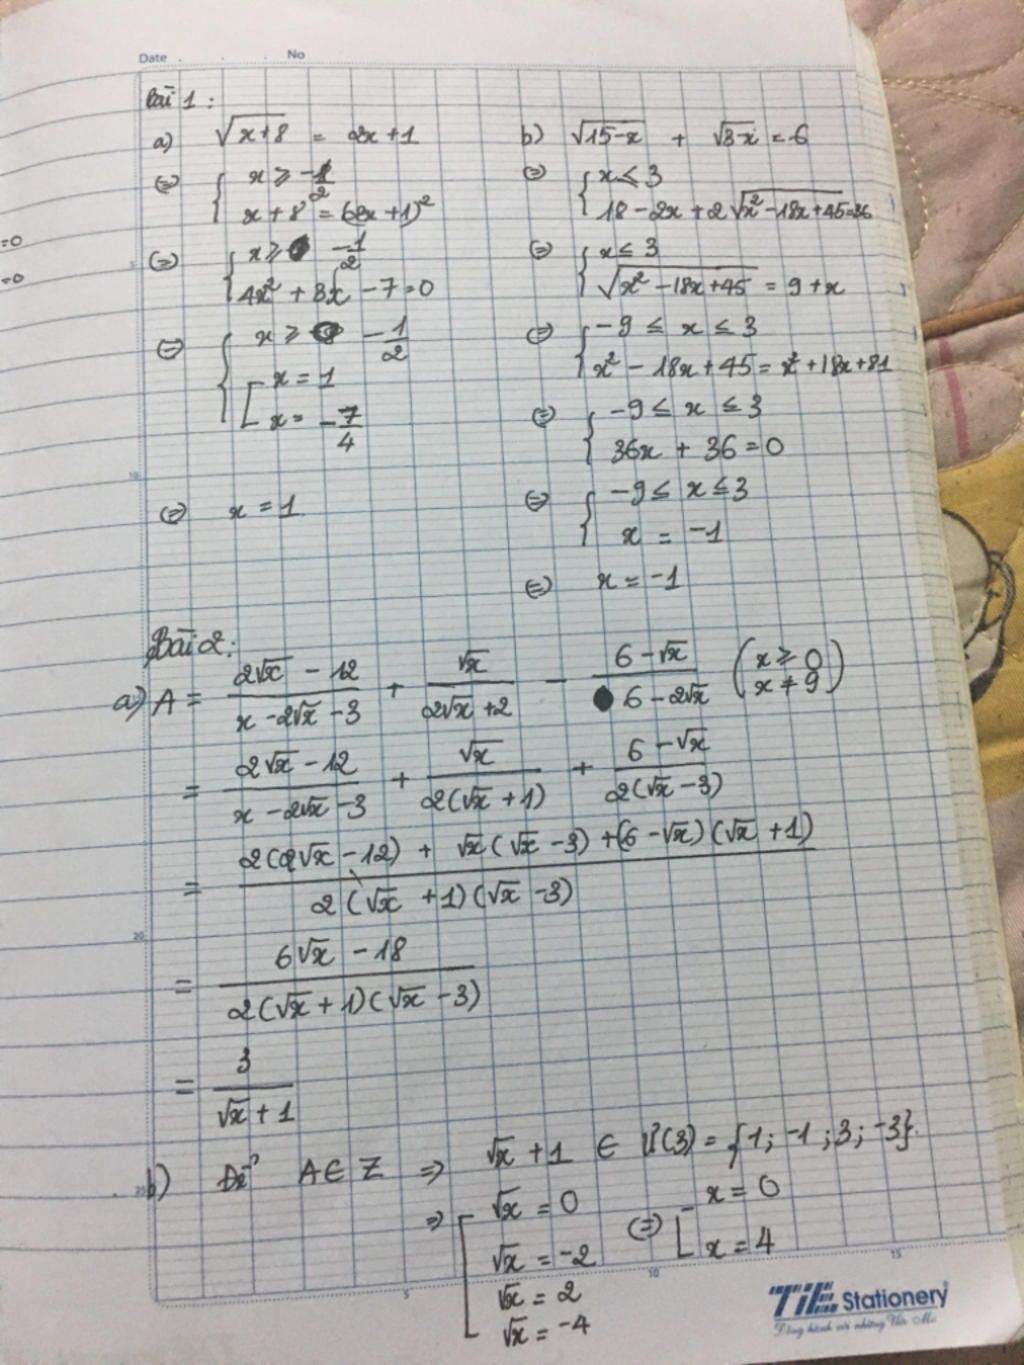 Date No
Bài 1:
a) √(x+8) = 2x+1
⇔ { x ⩾ -1/2
x+8 = (2x+1)²
⇔ { x ⩾ -1/2
4x² + 3x - 7 = 0
⇔ { x ⩾ -1/2
[ x = 1
x = -7/4
⇔ x = 1
b) √(15-x) + √(3-x) = 6
⇔ { x ⩽ 3
18 - 2x + 2√(x² - 18x + 45) = 36
⇔ { x ≤ 3
√(x² - 18x + 45) = 9 + x
⇔ { -9 ≤ x ≤ 3
x² - 18x + 45 = x² + 18x + 81
⇔ { -9 ≤ x ≤ 3
36x + 36 = 0
⇔ { -9 ≤ x ≤ 3
x = -1
⇔ x = -1
Bài 2:
a) A = (2√x - 12)/(x - 2√x - 3) + √x/(2√x + 2) - (6 - √x)/(6 - 2√x) (x ⩾ 0
x ≠ 9)
= (2√x - 12)/(x - 2√x - 3) + √x/(2(√x + 1)) + (6 - √x)/(2(√x - 3))
= (2(2√x - 12) + √x(√x - 3) + (6 - √x)(√x + 1))/(2(√x + 1)(√x - 3))
= (6√x - 18)/(2(√x + 1)(√x - 3))
= 3/(√x + 1)
b) Để A ∈ Z ⇒ √x + 1 ∈ Ư(3) = {1; -1; 3; -3}.
⇒ [ √x = 0
√x = -2
√x = 2
√x = -4
⇔ [ x = 0
x = 4
5
10
20
25
5
10
15
TiE Stationery
=0
=0